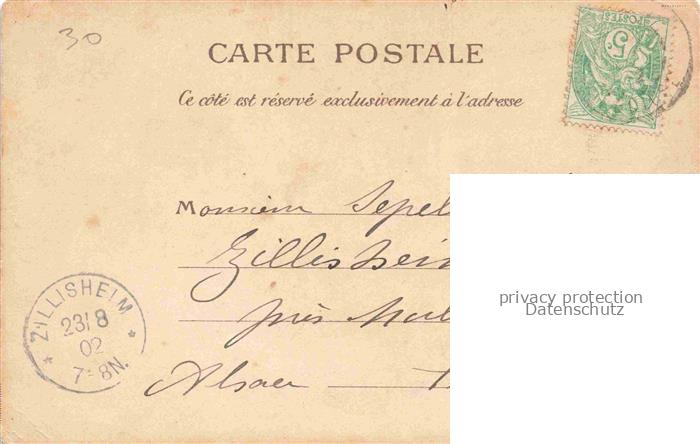 30
CARTE POSTALE
Ce côté est réservé exclusivement à l'adresse
5c
POSTES
Monsieur Sepel
Zillisheim
près Mul
Alsace
ZILLISHEIM
23 8
02
7-8N.
privacy protection
Datenschutz